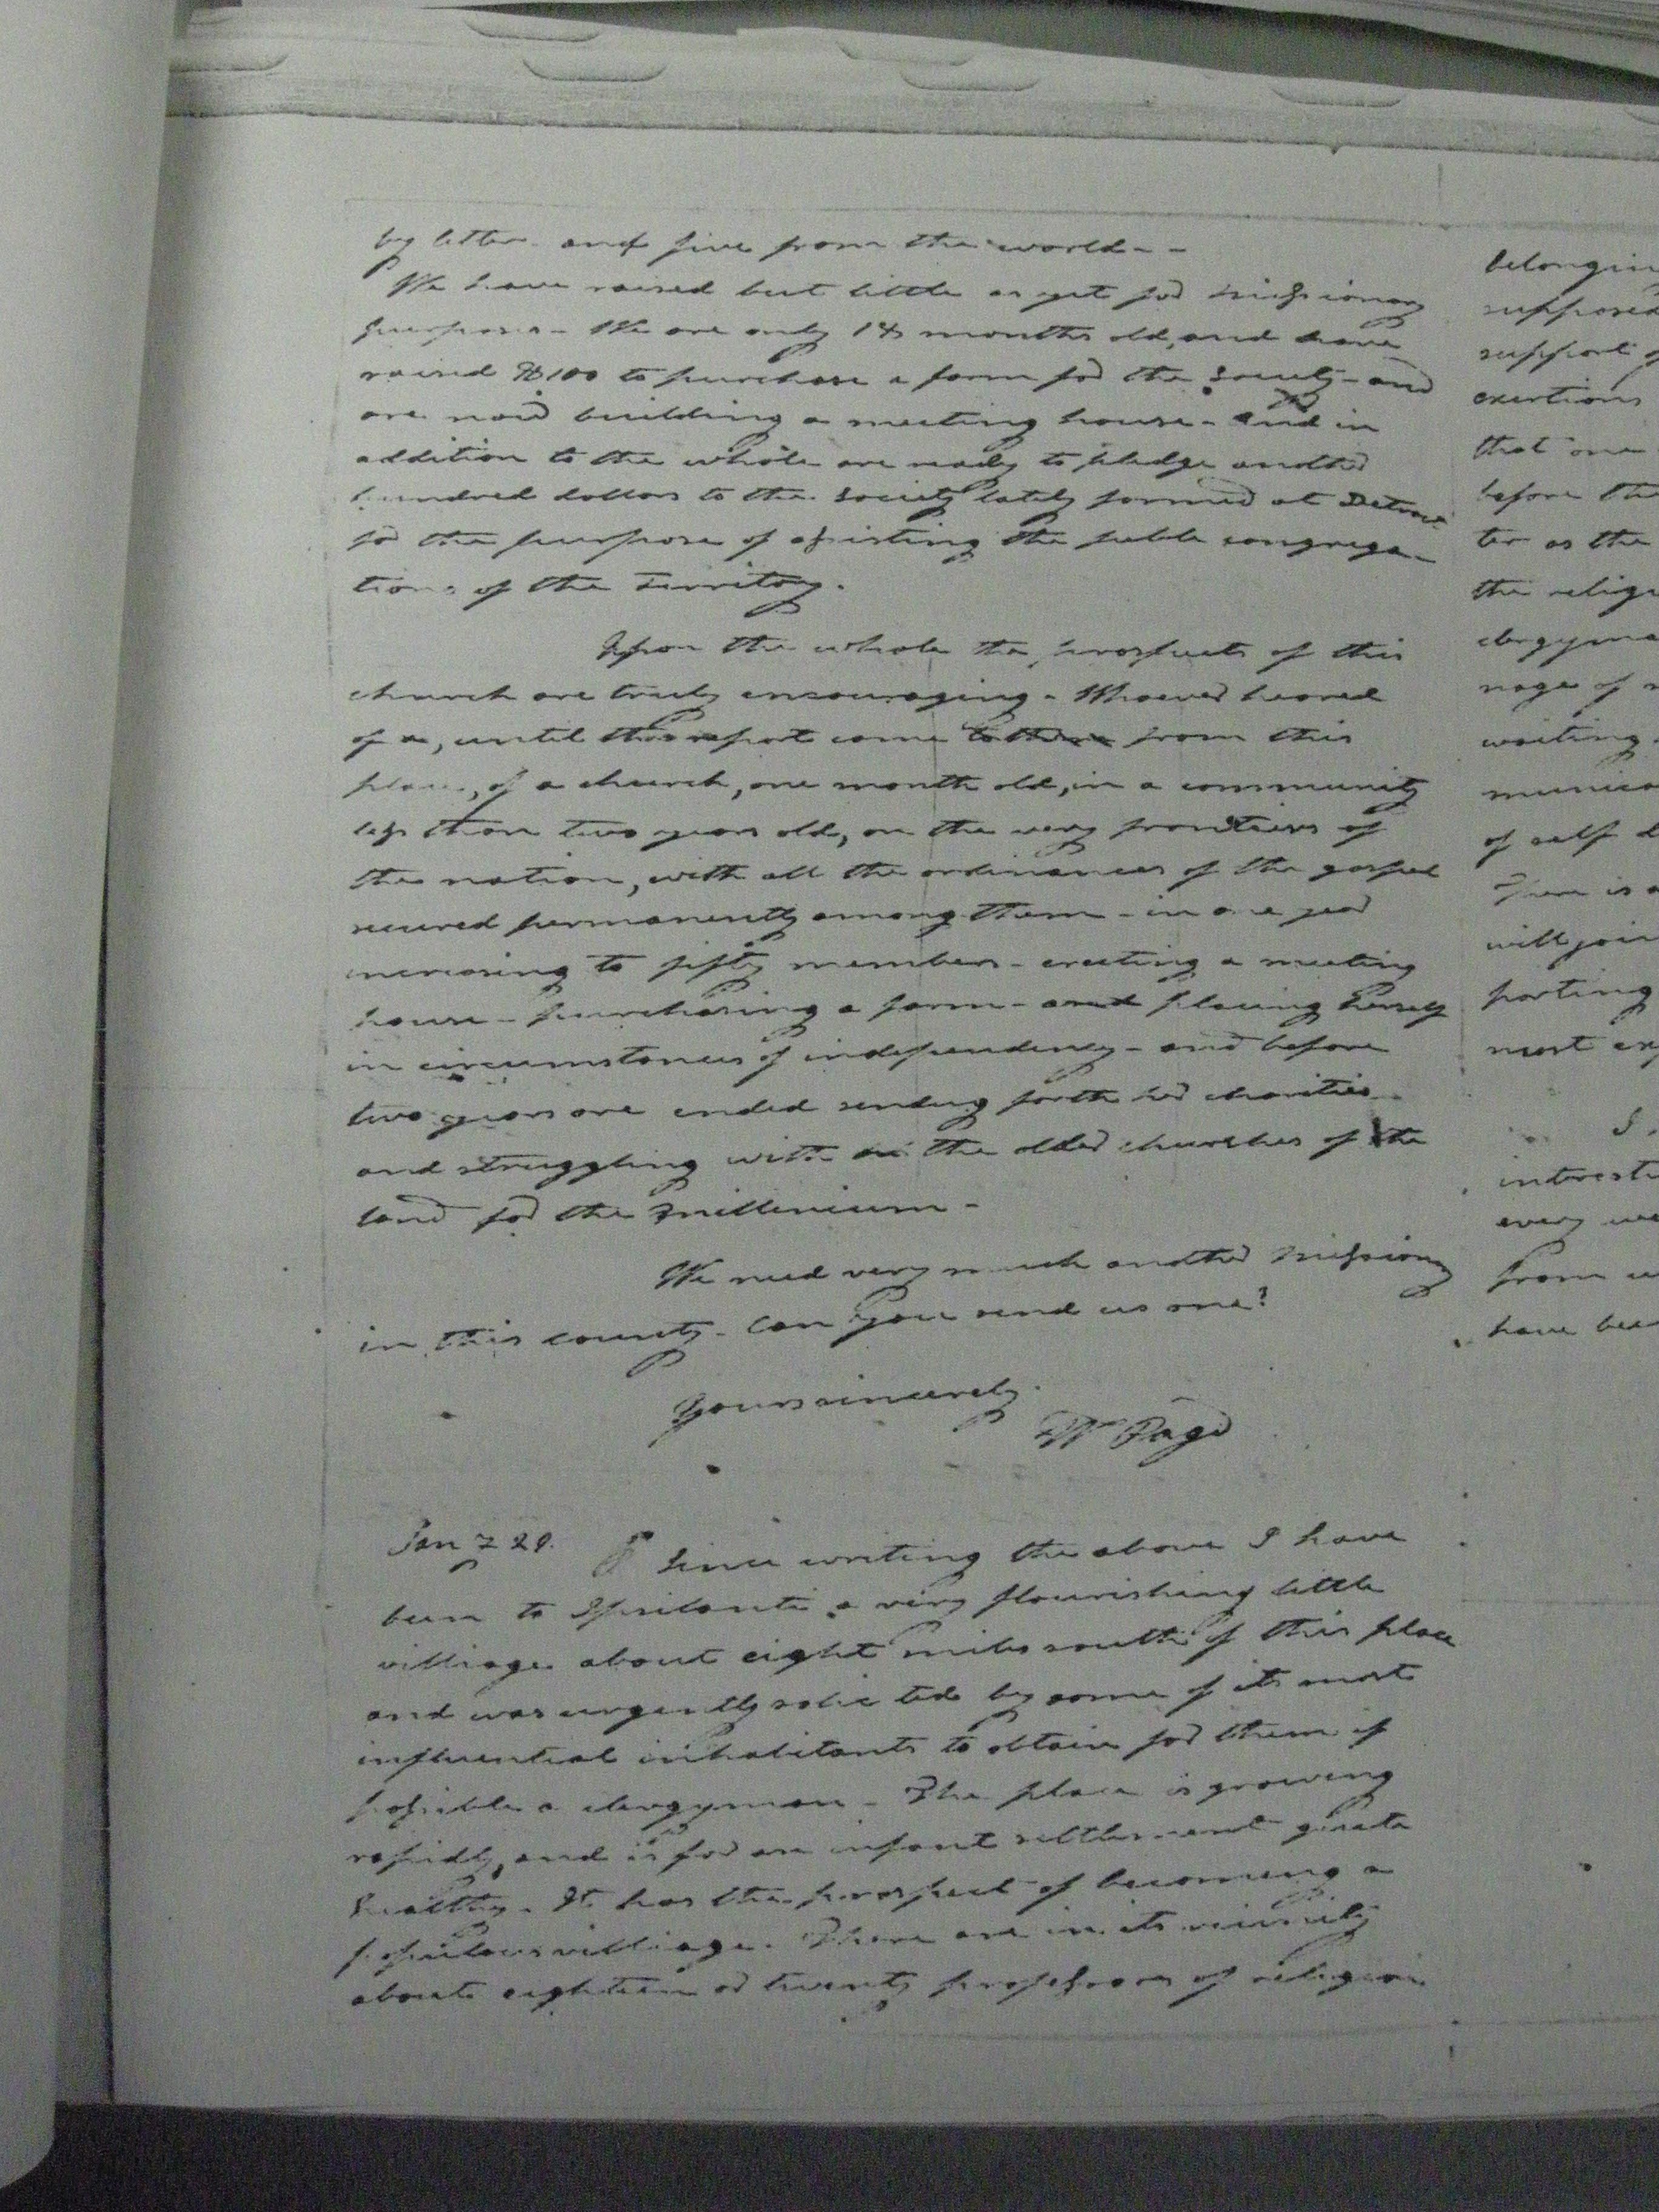 by letter and five from the world - -
We have raised but little as yet for missionary
purposes - We are only 18 months old, and have
raised $100 to purchase a farm for the society - and
are now building a meeting house - and in
addition to the whole are ready to pledge another
hundred dollars to the society lately formed at Detroit
for the purpose of assisting the feble congrega-
tions of the Territory.
Upon the whole the prospects of this
church are truly encouraging - Whoever heared
of a, until this report came from this
place, of a church, one month old, in a community
less than two years old, on the very frontiers of
the nation, with all the ordinances of the gospel
secured permanently among them - in one year
increasing to fifty members - erecting a meeting
house - purchasing a farm - and placing herself
in circumstances of independency - and before
two years are ended sending forth her charities
and struggling with the older churches of the
land for the millenium -
We need very much another missionary
in this county - Can you send us one?
Yours sincerely
Wm Page
Jan 7 29. Since writing the above I have
been to Ypsilanti a very flourishing little
villiage about eight miles south of this place
and was urgently solicited by some of its most
influential inhabitants to obtain for them if
possible a clergyman - The place is growing
rapidly, and is for an infant settlement quite
healthy. It has the prospect of becoming a
populous villiage. There are in its vicinity
about eighteen or twenty professors of religion
supposed
support of
exertions
that one
before the
ter as the
the relig
clergyma
nage of
waiting
of self
will join
porting
most
every
from
have bee